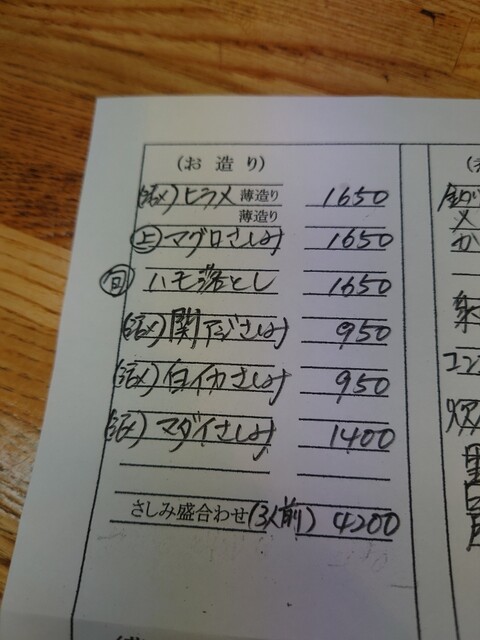 (お造り)
(活〆)ヒラメ 薄造り 1650
薄造り
㊤マグロさしみ 1650
㊬ハモ落とし 1650
(活〆)関アジさしみ 950
(活〆)白イカさしみ 950
(活〆)マダイさしみ 1400
さしみ盛合わせ(3人前) 4200
メ
か
コン